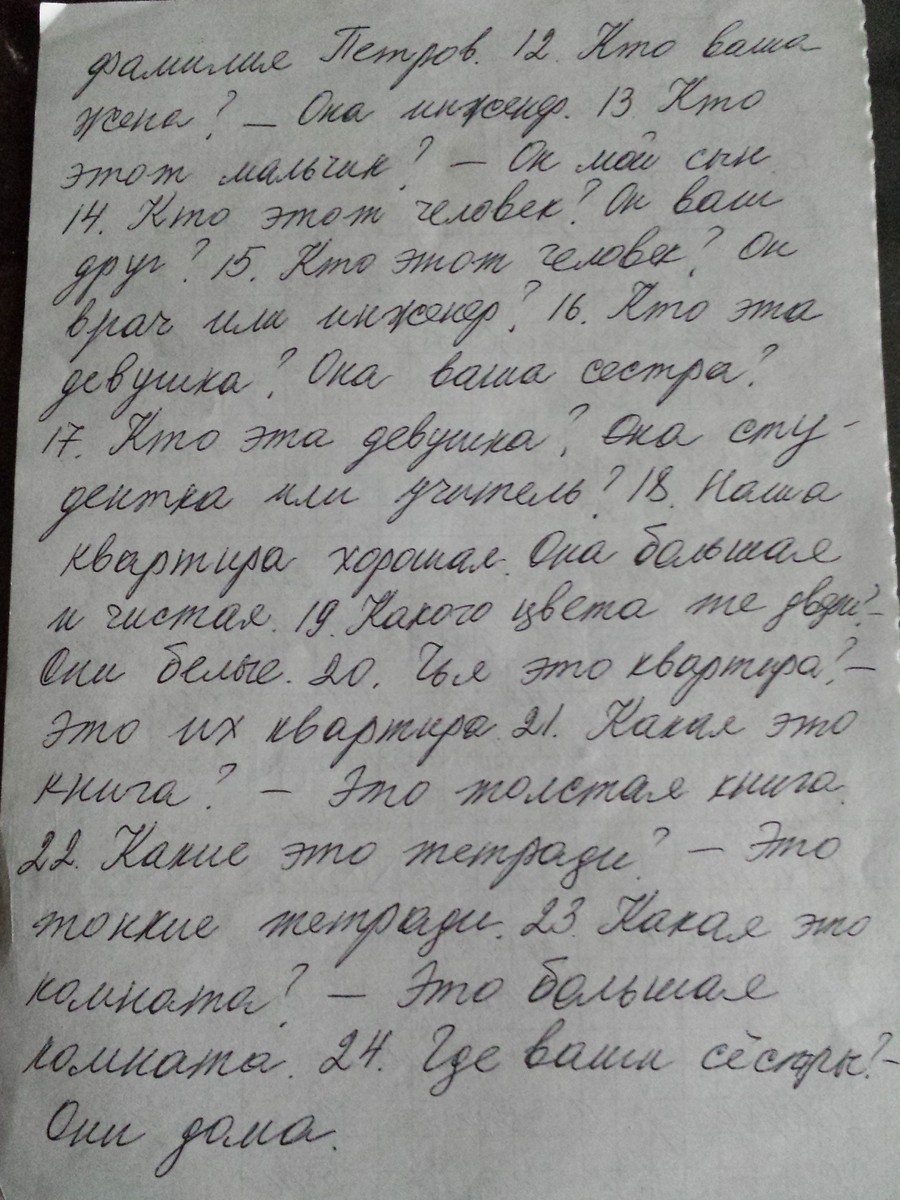 фамилия Петров. 12. Кто ваша
жена? – Она инженер. 13 Кто
этот мальчик? – Он мой сын
14. Кто этот человек? Он ваш
друг? 15. Кто этот человек? Он
врач или инженер? 16. Кто эта
девушка? Она ваша сестра?
17. Кто эта девушка? Она сту-
дентка или учитель? 18. Наша
квартира хорошая. Она большая
и чистая. 19. Какого цвета те двери? –
Они белые. 20. Чья это квартира? –
Это их квартира. 21. Какая это
книга? – Это толстая книга.
22. Какие это тетради? – Это
тонкие тетради. 23. Какая это
комната? – Это большая
комната. 24. Где ваши сёстры? –
Они дома.